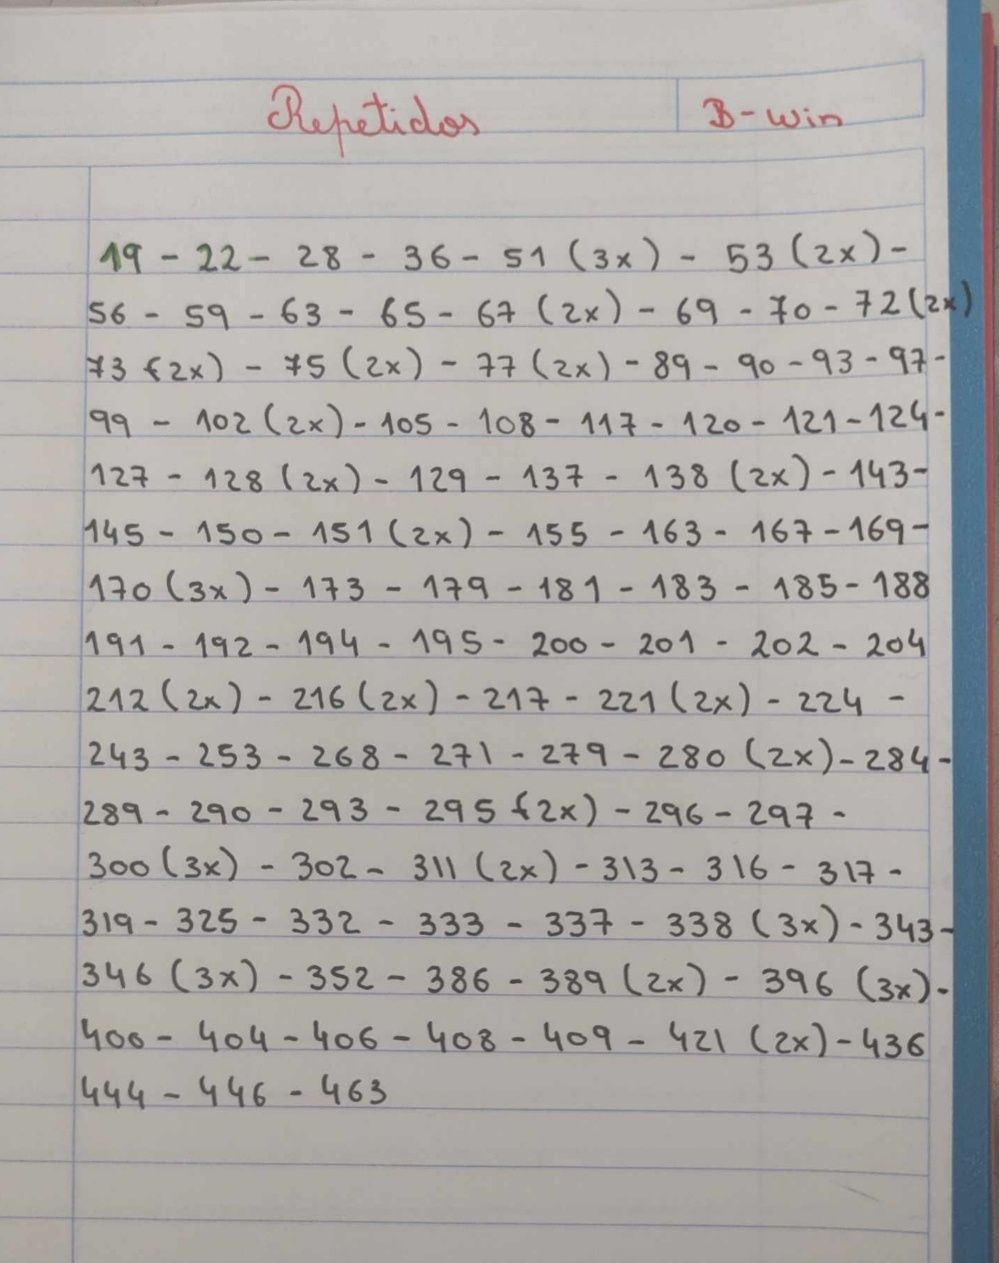 Repetidos B-win
19 - 22 - 28 - 36 - 51 (3x) - 53 (2x) -
56 - 59 - 63 - 65 - 67 (2x) - 69 - 70 - 72 (2x)
73 (2x) - 75 (2x) - 77 (2x) - 89 - 90 - 93 - 97 -
99 - 102 (2x) - 105 - 108 - 117 - 120 - 121 - 124 -
127 - 128 (2x) - 129 - 137 - 138 (2x) - 143 -
145 - 150 - 151 (2x) - 155 - 163 - 167 - 169 -
170 (3x) - 173 - 179 - 181 - 183 - 185 - 188
191 - 192 - 194 - 195 - 200 - 201 - 202 - 204
212 (2x) - 216 (2x) - 217 - 221 (2x) - 224 -
243 - 253 - 268 - 271 - 279 - 280 (2x) - 284 -
289 - 290 - 293 - 295 (2x) - 296 - 297 -
300 (3x) - 302 - 311 (2x) - 313 - 316 - 317 -
319 - 325 - 332 - 333 - 337 - 338 (3x) - 343 -
346 (3x) - 352 - 386 - 389 (2x) - 396 (3x) -
400 - 404 - 406 - 408 - 409 - 421 (2x) - 436
444 - 446 - 463